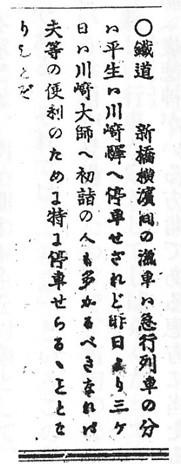 〇鐵道　新橋横濱間の滊車ハ急行列車の分
ハ平生ハ川崎驛へ停車せざれど昨日より三ケ
日ハ川崎大師へ初詣の人も多かるべきなれバ
夫等の便利のため特に停車せらるゝことと
なりしとぞ